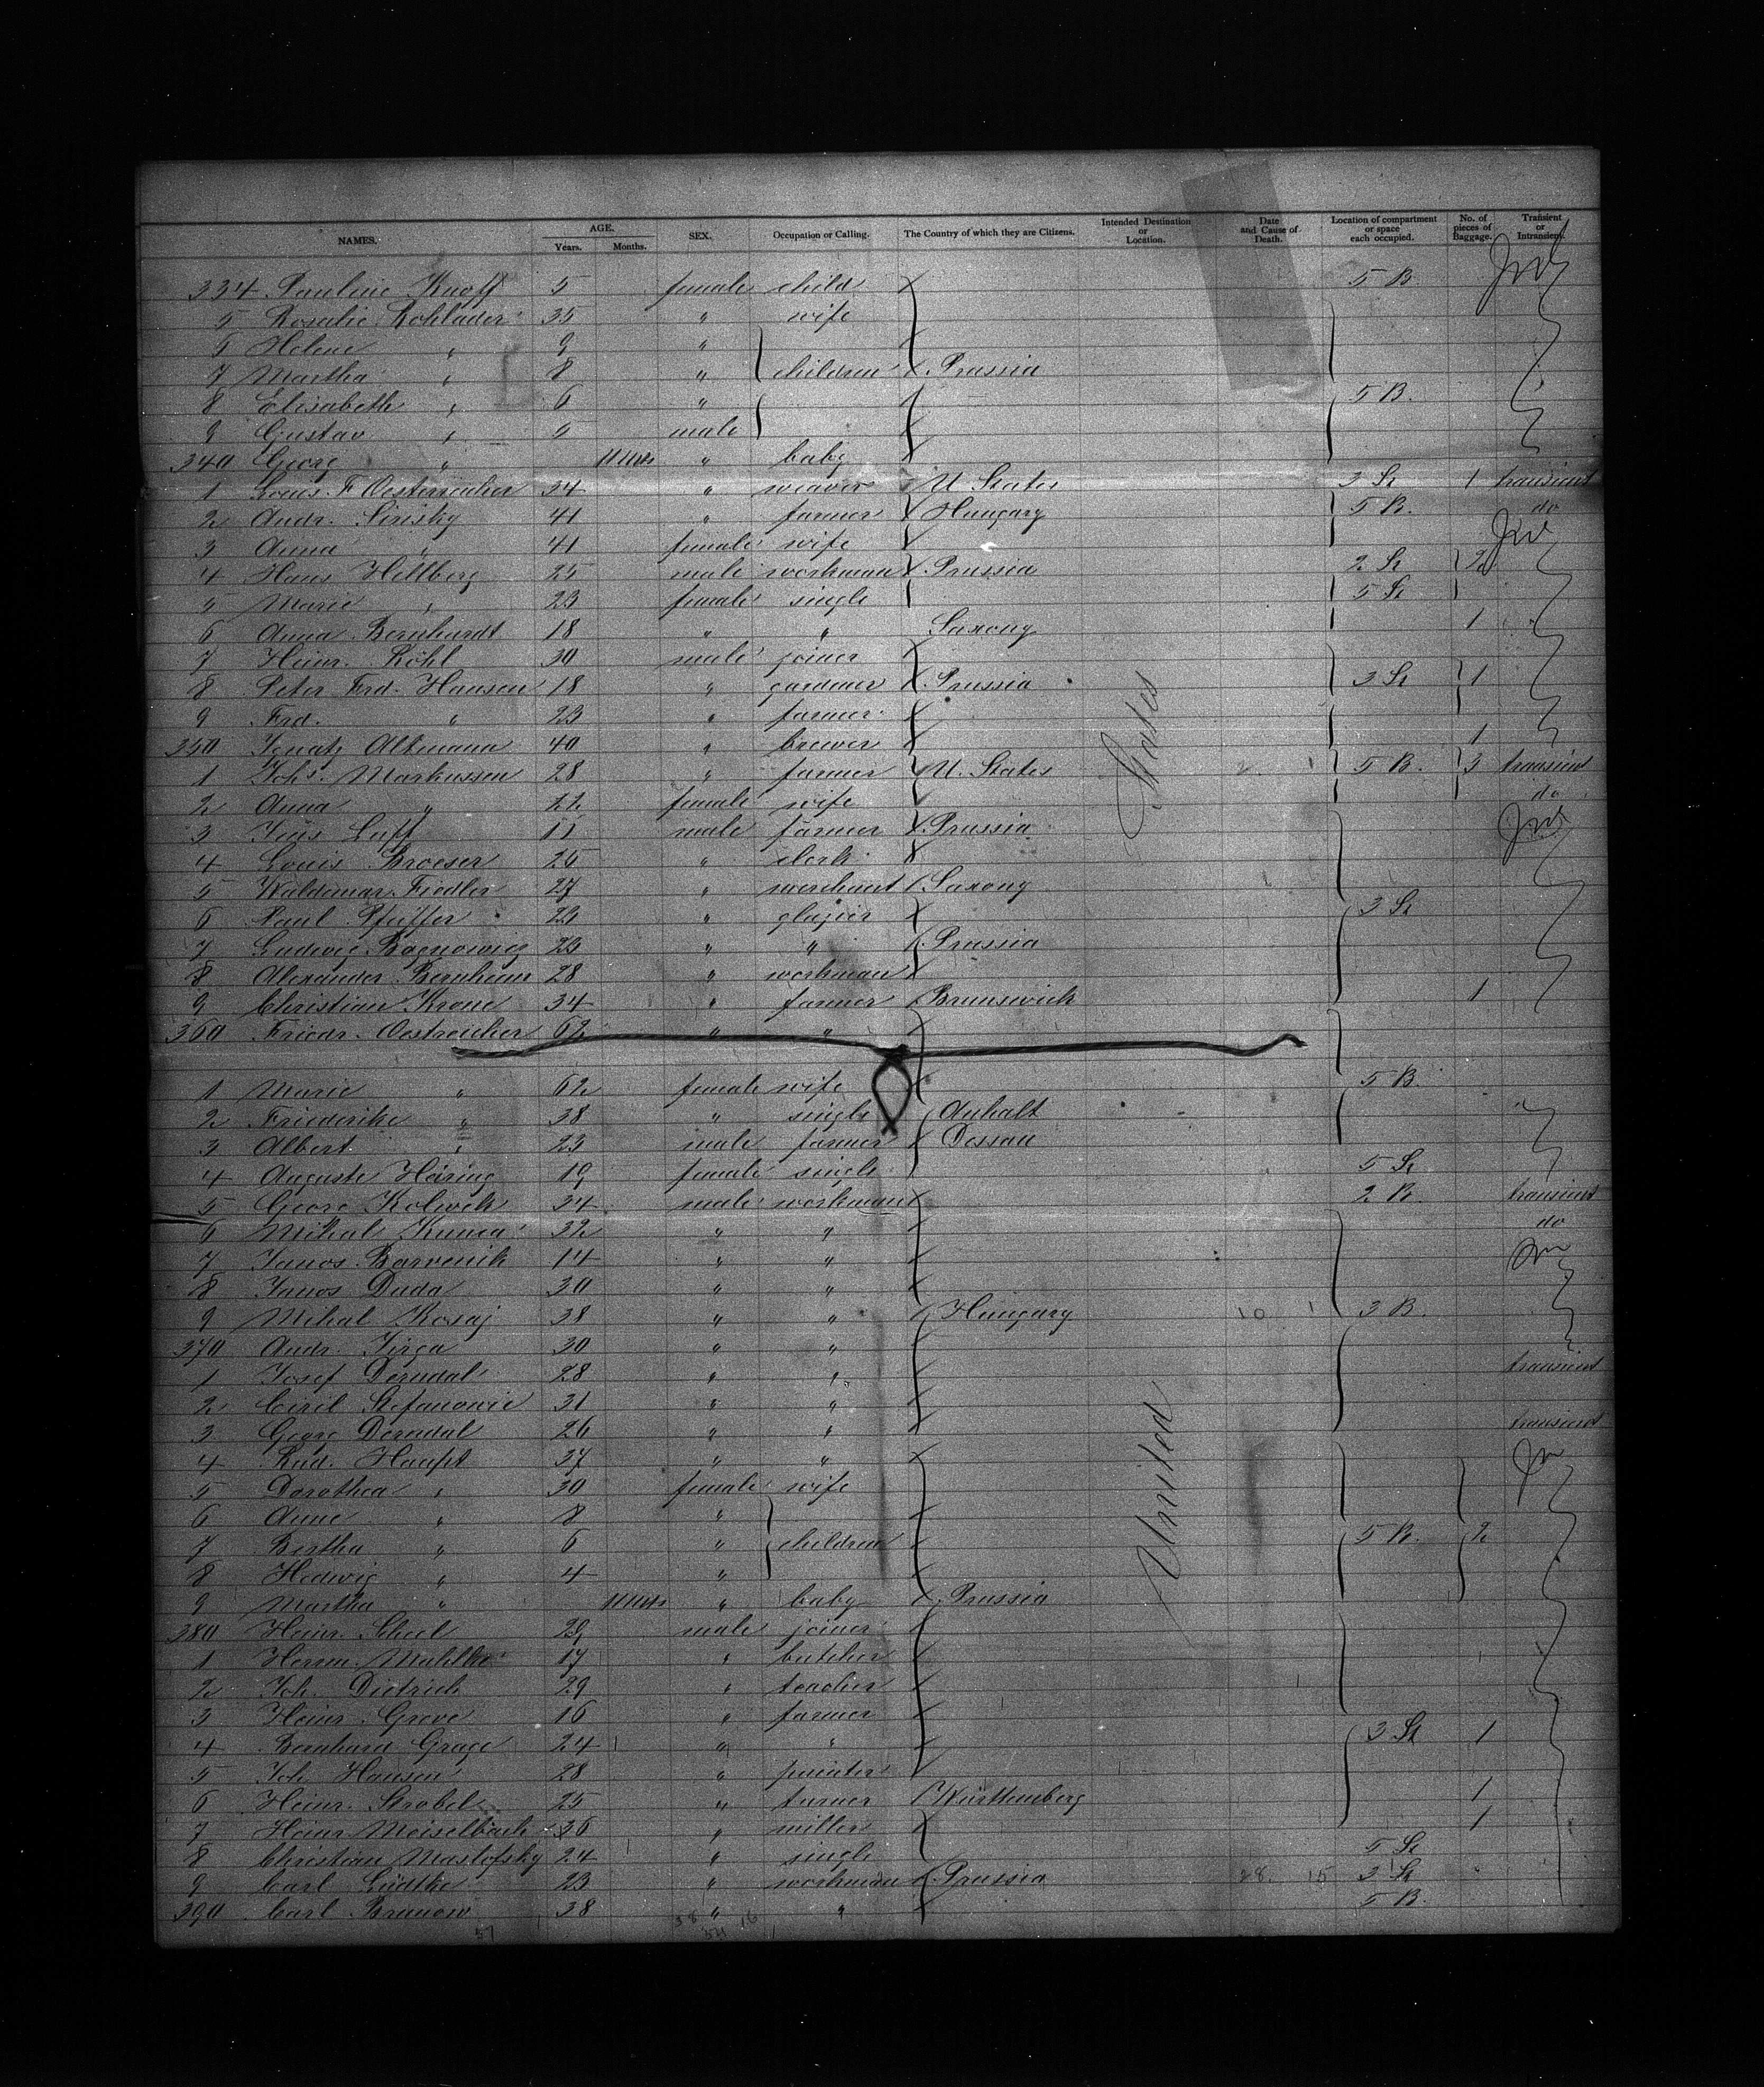 NAMES. AGE. Years. Months. SEX. Occupation or Calling. The Country of which they are Citizens. Intended Destination or Location. Date and Cause of Death. Location of compartment or space each occupied. No. of pieces of Baggage. Transient or Intransient.
334 Pauline Knoff 5 female child 5 B.
5 Rosalie Kohlader 35 " wife
6 Helene " 9 "
7 Martha " 8 " children Prussia
8 Elisabeth " 6 " 5 B.
9 Gustav " 5 male
340 Georg " 11 Mts " baby
1 Louis F Oesterreicher 34 " weaver U States 3 St 1 transient
2 Andr. Sirisky 41 " farmer Hungary 5 B. do
3 Anna " 41 female wife
4 Hans Hillberg 25 male workman Prussia 2 St 2
5 Marie " 23 female single 5 St
6 Anna Bernhardt 18 " " Saxony 1
7 Heinr. Röhl 30 male joiner
8 Peter Frd. Hansen 18 " gardener Prussia 3 St 1
9 Frd. " 23 " farmer
350 Ignatz Altmann 40 " brewer 1
1 Johs. Markussen 28 " farmer U. States 5 B. 3 transient
2 Anna " 22 female wife do
3 Jens male farmer Prussia
4 Louis Broeser 25 " clerk
5 Waldemar Fiedler 27 " merchant Saxony
6 Paul Pfeiffer 23 " glazier 3 St
7 Ludwig 23 " " Prussia
8 Alexander Bernheim 28 " workman
9 Christian Krone 34 " farmer Brunswick 1
360 Friedr. Oestreicher 62 " "
1 Marie " 62 female wife 5 B.
2 Friederike " 38 " single Anhalt
3 Albert " 23 male farmer Dessau
4 Auguste Häring 19 female single 5 St
5 Georg Kolwek 34 male workman 2 B. transient
6 Mihal Kunca 32 " " do
7 Janos Barvenik 14 " "
8 Janos Duda 30 " "
9 Mihal Kosaj 38 " " Hungary 10 1 3 B.
370 Andr. Jirga 30 " "
1 Josef Derndal 28 " " transient
2 Ciril Stefanowic 31 " "
3 Georg Derndal 26 " " transient
4 Rud. Haupt 37 " "
5 Dorothea " 30 female wife
6 Anne " 8 "
7 Bertha " 6 " children 5 B. 2
8 Hedwig " 4 "
9 Martha " 11 Mts " baby Prussia
380 Heinr. Scheel 29 male joiner
1 Herm. Mahlke 17 " butcher
2 Joh. Dietrich 29 " teacher
3 Heinr. Greve 16 " farmer
4 Bernhard Grage 24 " " 3 St 1
5 Joh. Hansen 28 " painter
6 Heinr. Strobel 25 " turner Württemberg 1
7 Heinr. Meiselbach 36 " miller 1
8 Christian Mastofsky 24 " single 5 St
9 Carl Lüdtke 23 " workman Prussia 28 15 3 St
390 Carl Brunow 38 " " 5 B.
United States